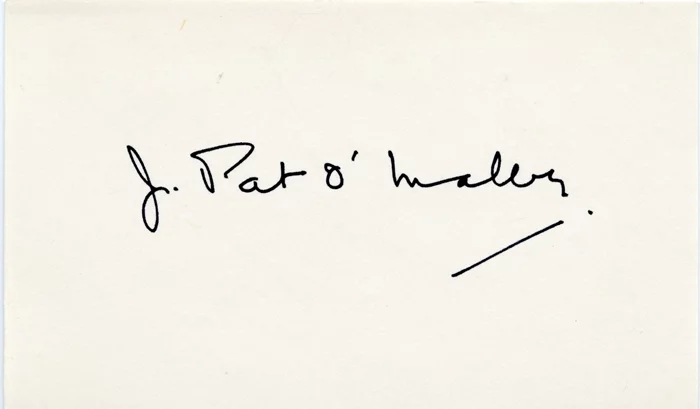 J. Pat O'Malley.